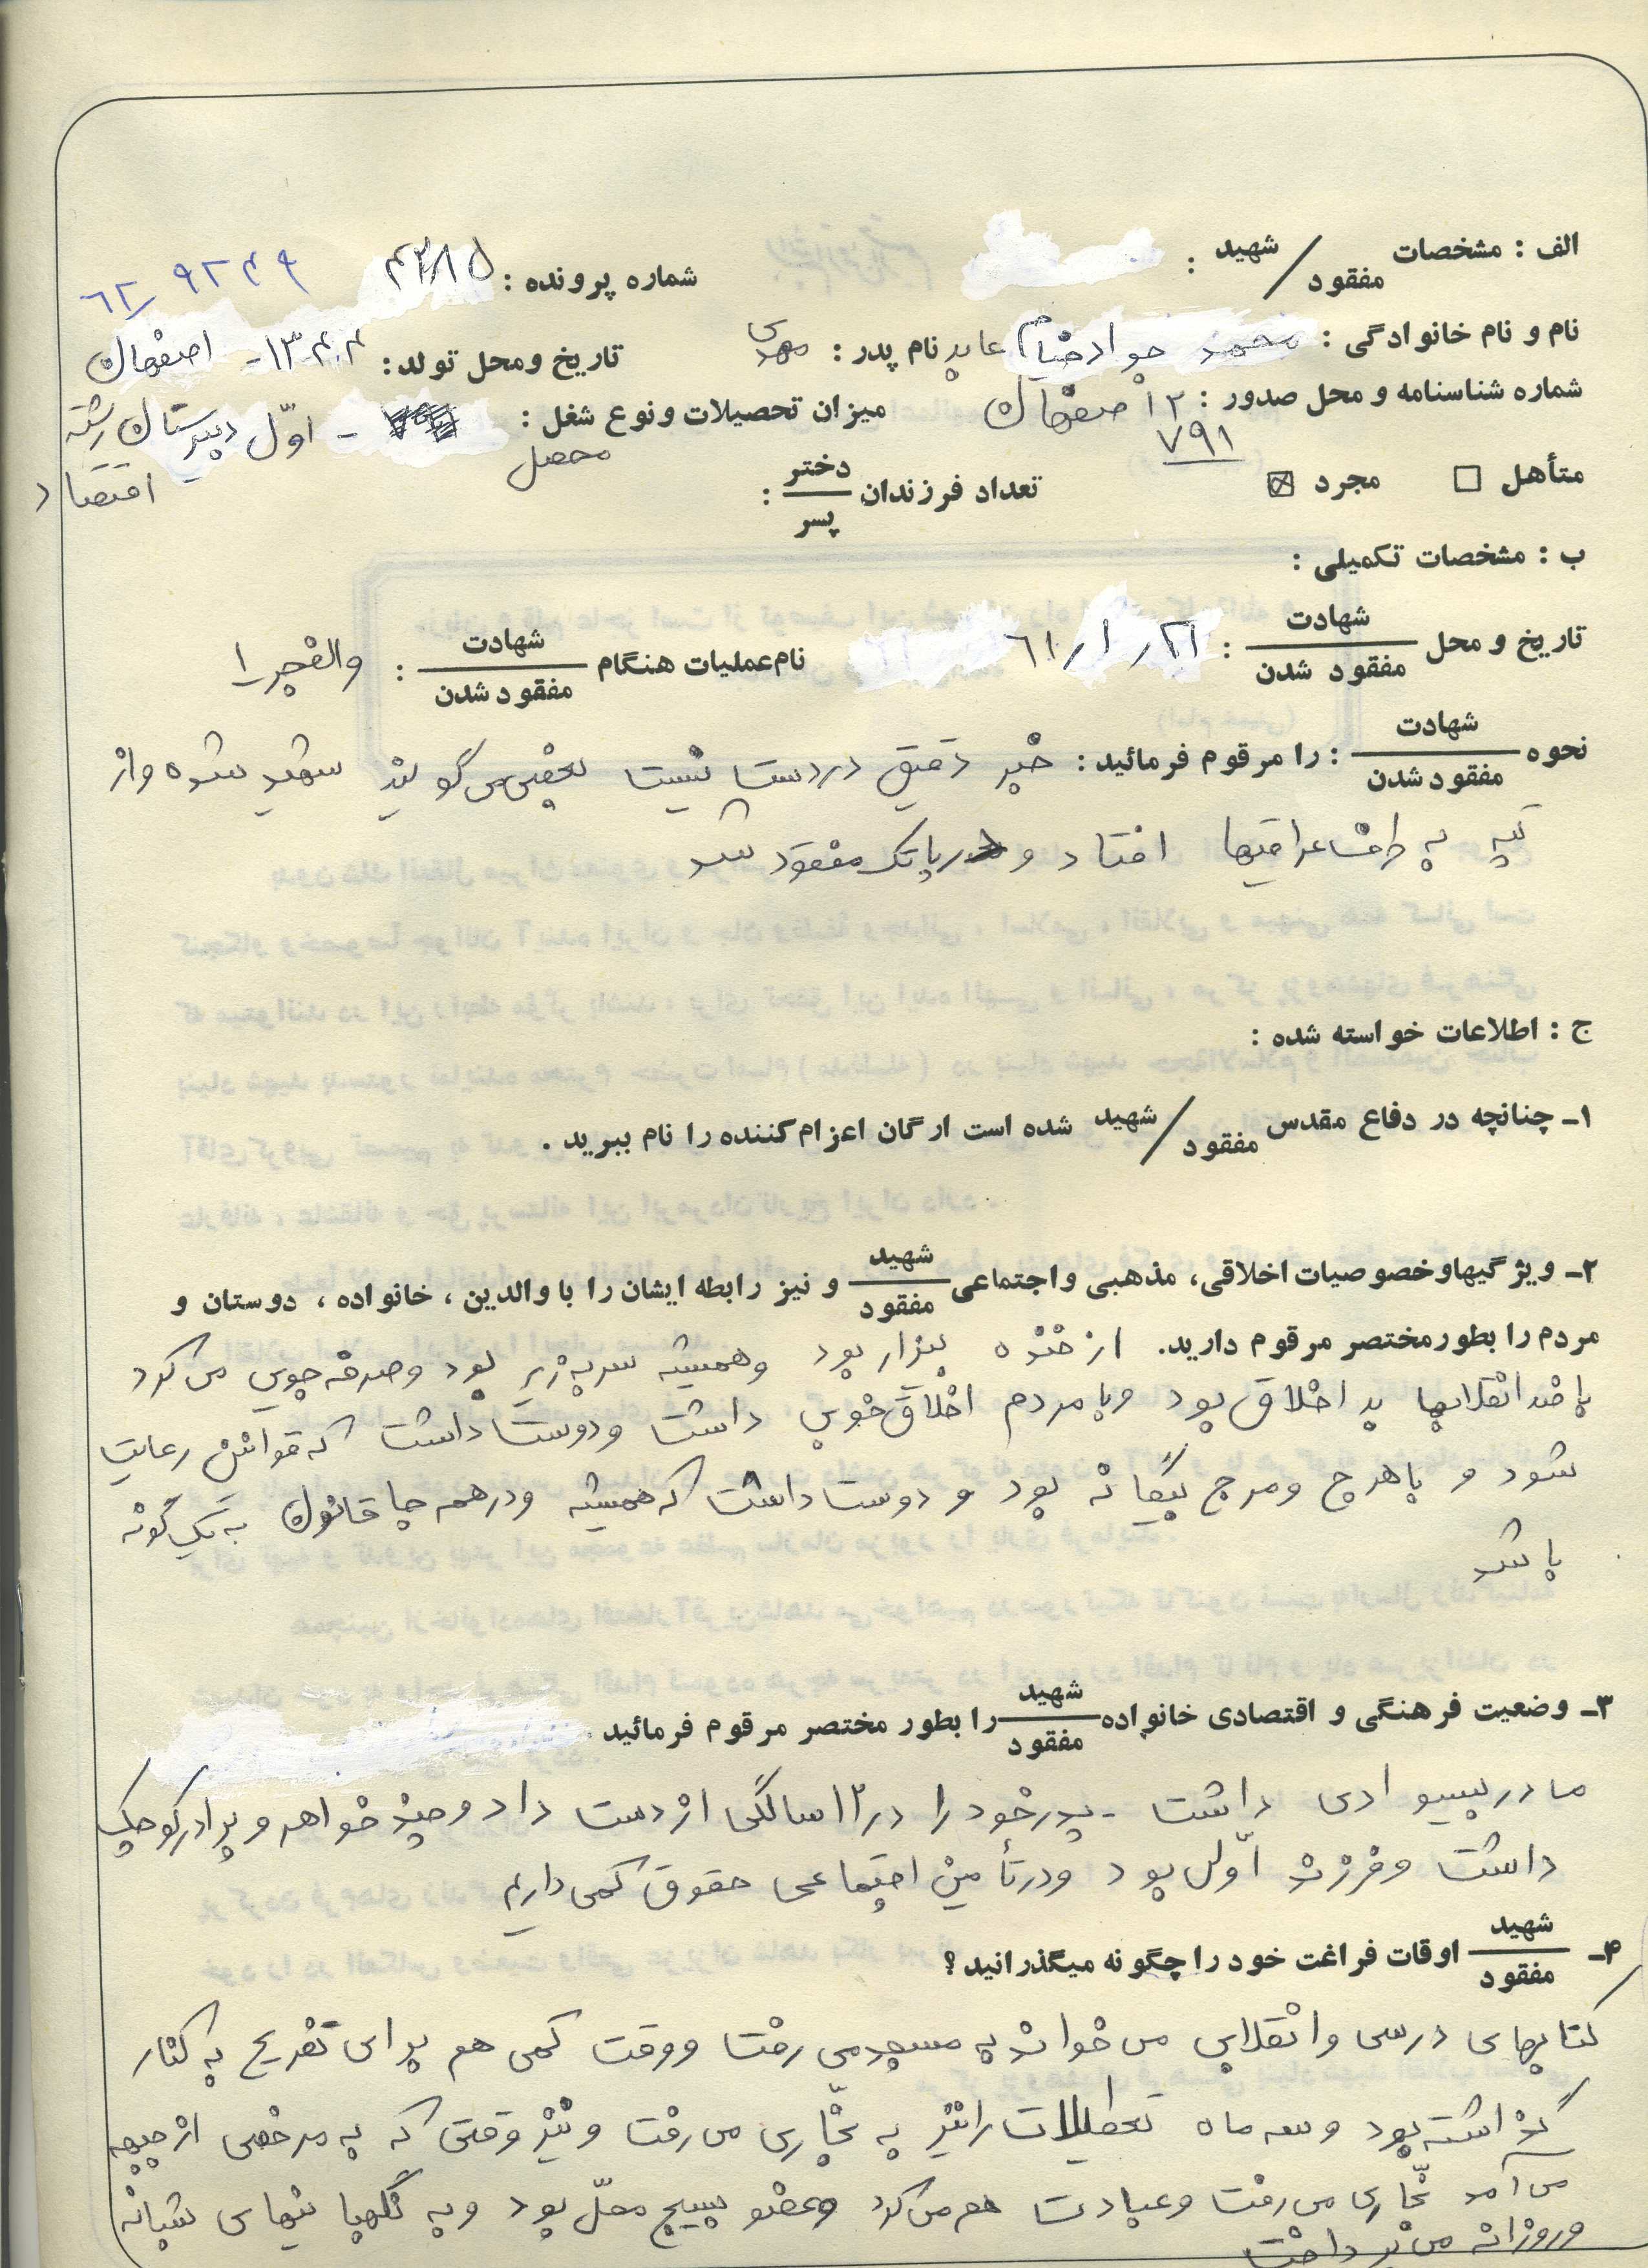 الف : مشخصات شهید / مفقود :
شماره پرونده : ۴۲۸۵ ۹۲۴۹ /۶۲
نام و نام خانوادگی : محمد جواد خیام عابد نام پدر : مهدی تاریخ ومحل تولد : ۱۳۴۰.۴ - اصفهان
شماره شناسنامه و محل صدور : ۱۲ اصفهان ۷۹۱ میزان تحصیلات ونوع شغل : محصل - اوّل دبیرستان رشته اقتصاد
متأهل ☐ مجرد ☒ تعداد فرزندان دختر / پسر :
ب : مشخصات تکمیلی :
تاریخ و محل شهادت / مفقود شدن : ۲۱ / ۱ / ۶۱ نام عملیات هنگام شهادت / مفقود شدن : والفجر ۱
نحوه شهادت / مفقود شدن : را مرقوم فرمائید : خبر دقیق در دست نیست بعضی می گویند شهید شده و از
تپه به طرف عراقیها افتاد و در پاتک مفقود شد
ج : اطلاعات خواسته شده :
۱ـ چنانچه در دفاع مقدس شهید / مفقود شده است ارگان اعزام کننده را نام ببرید .
۲ـ ویژگیها و خصوصیات اخلاقی، مذهبی واجتماعی شهید / مفقود و نیز رابطه ایشان را با والدین ، خانواده ، دوستان و
مردم را بطور مختصر مرقوم دارید. از خنده بیزار بود وهمیشه سر به زیر بود و صرفه جویی می کرد
با ضد انقلابیها بد اخلاق بود و با مردم اخلاق خوبی داشت و دوست داشت که قوانین رعایت
شود و با هرج ومرج بیگانه بود و دوست داشت که همیشه ودر همه جا قانون به یک گونه
باشد
۳ـ وضعیت فرهنگی و اقتصادی خانواده شهید / مفقود را بطور مختصر مرقوم فرمائید .
مادر بیسوادی داشت - پدر خود را در ۱۲ سالگی از دست داد و چند خواهر و برادر کوچک
داشت و فرزند اوّل بود ودر تأمین اجتماعی حقوق کمی داریم
۴ـ شهید / مفقود اوقات فراغت خود را چگونه میگذرانید ؟
کتابهای درسی وانقلابی می خواند به مسجد می رفت ووقت کمی هم برای تفریح به کنار
گذاشته بود و سه ماه تعطیلات را نیز به نجّاری می رفت و نیز وقتی که به مرخصی از جبهه
می آمد نجّاری می رفت و عبادت هم می کرد و عضو بسیج محلّ بود و به نگهبانیهای شبانه
و روزانه می پرداخت